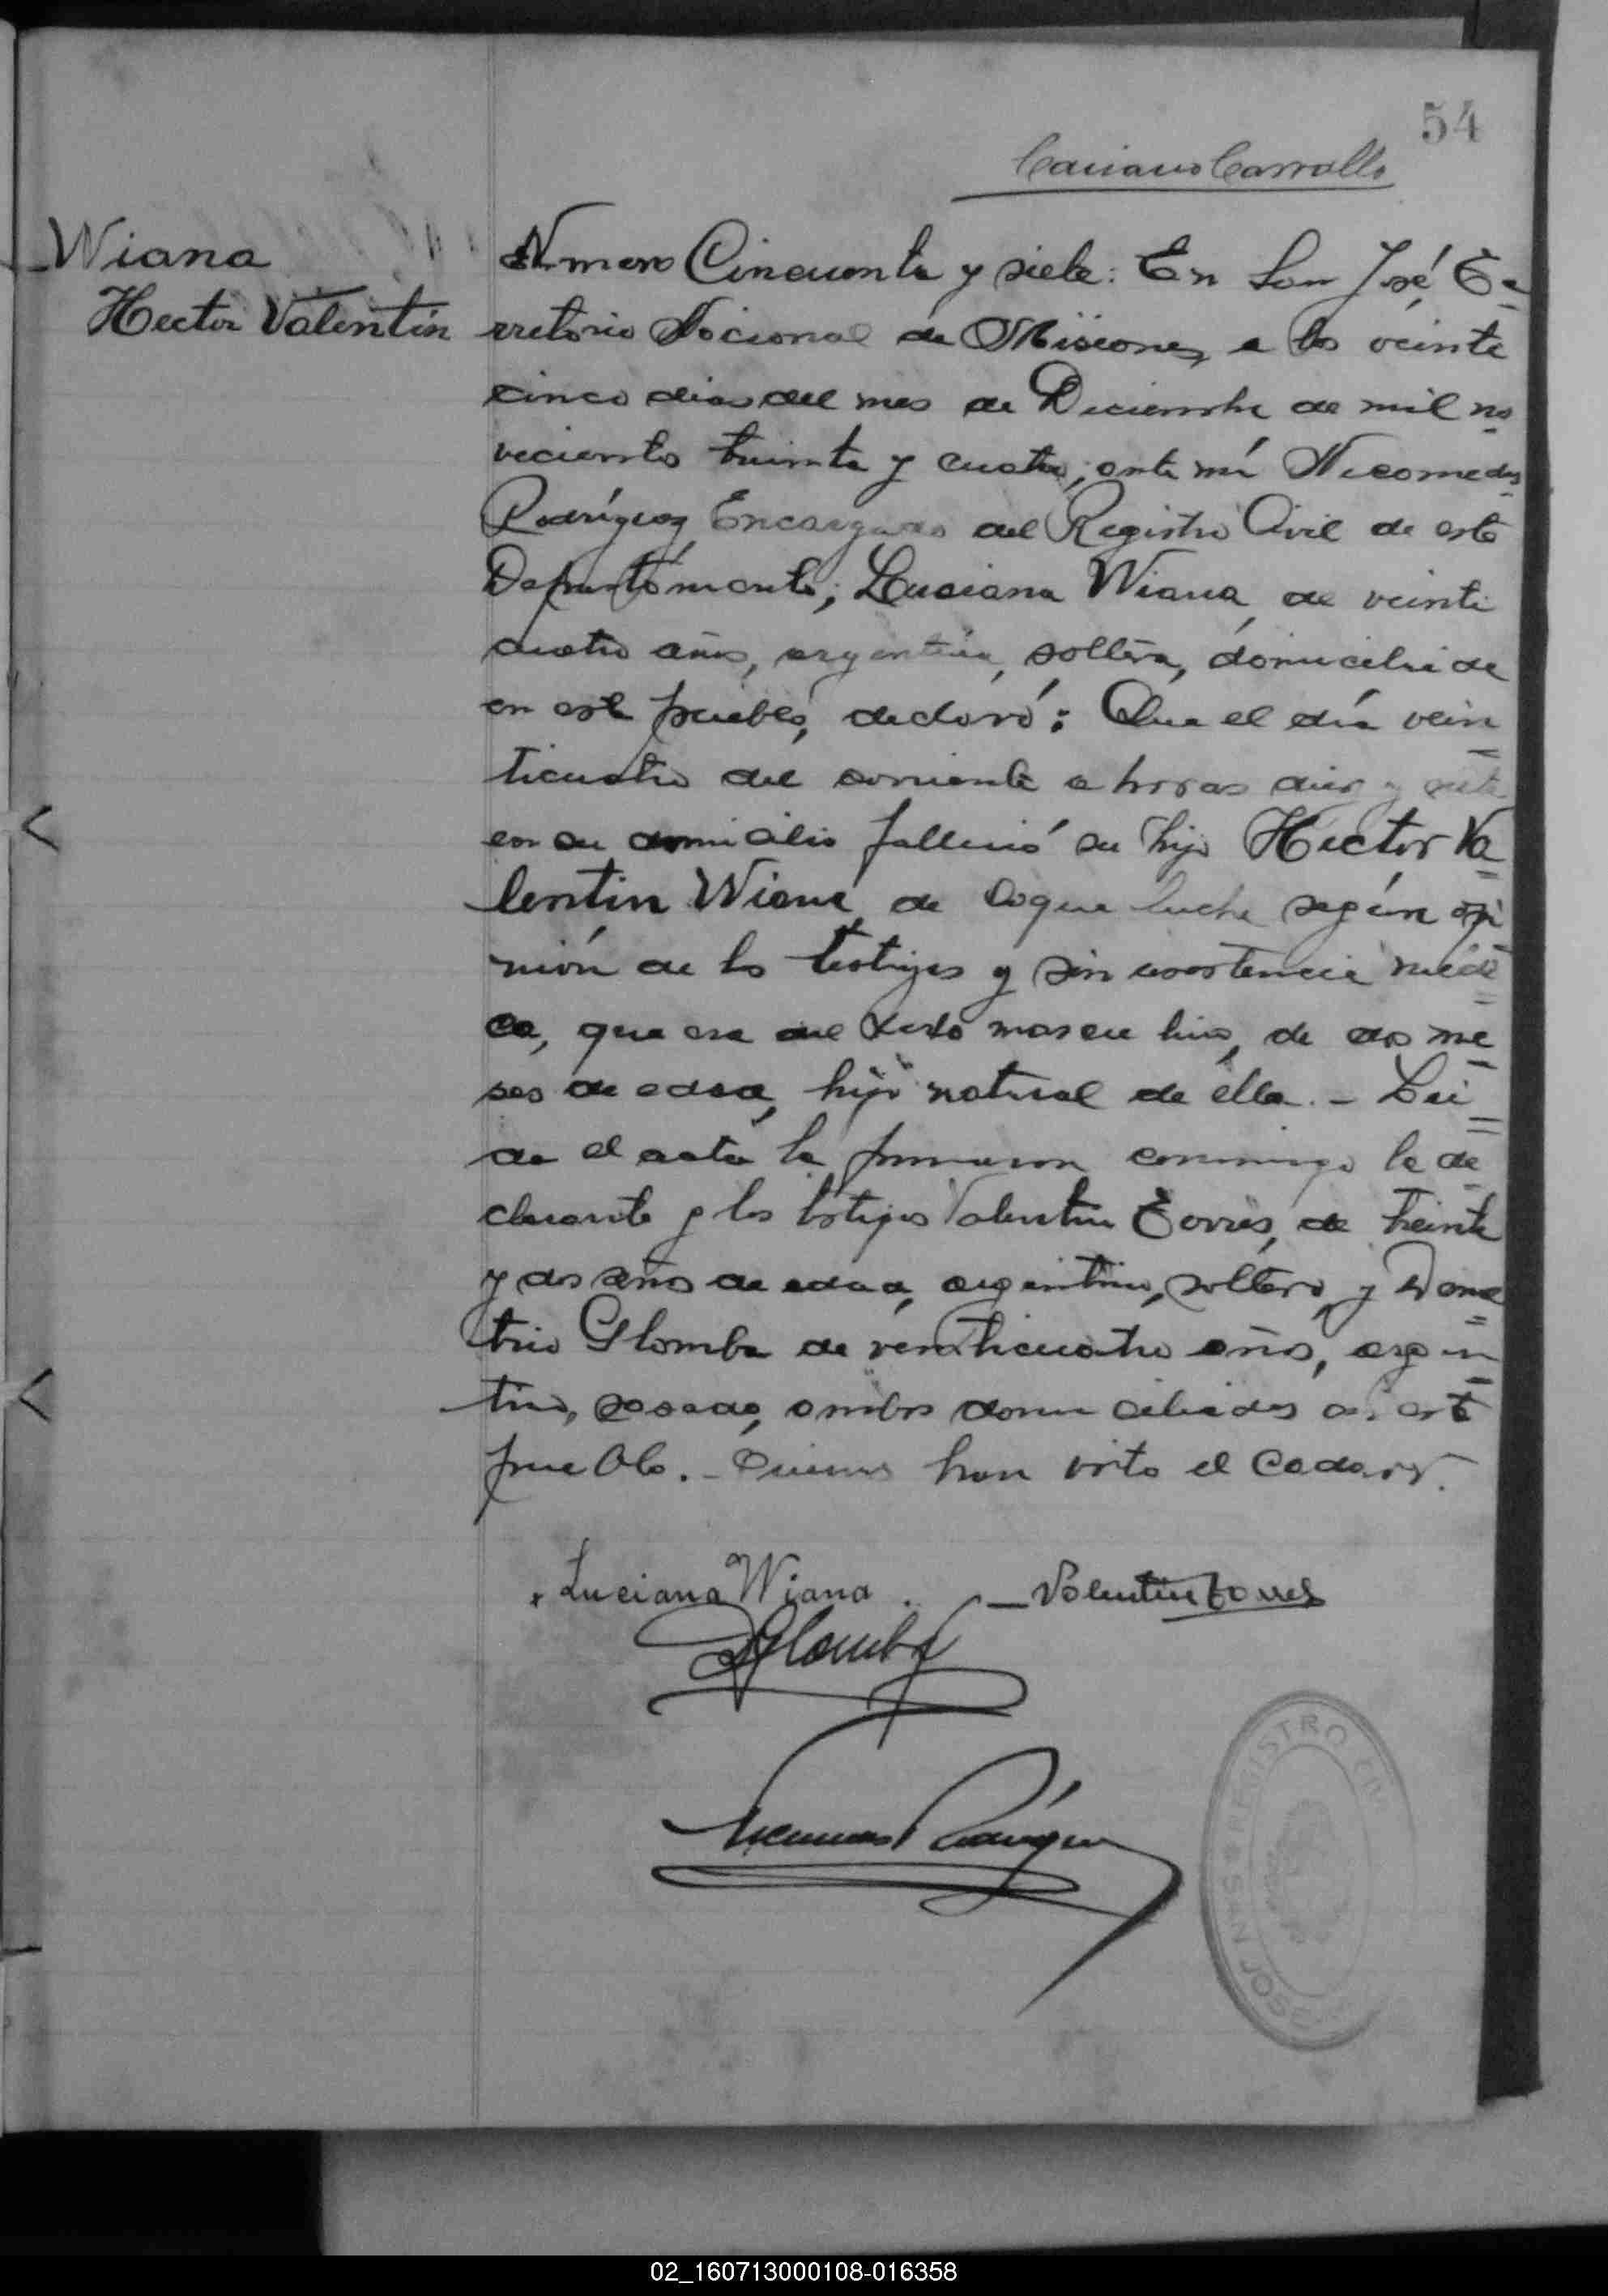 54
Caciano Carvallo
Wiana
Hector Valentin
Número Cincuenta y siete: En San José Te-
rritorio Nacional de Misiones, a los veinte
cinco dias del mes de Diciembre de mil no
vecientos treinta y cuatro, ante mí Nicomedes
Rodríguez Encargado del Registro Civil de este
Departamento; Luciana Wiana, de veinti
cuatro años, argentina, soltera, domiciliada
en este pueblo, declaró: Que el día vein
ticuatro del corriente a horas diez y siete
en su domicilio falleció su hijo Hector Va
lentin Wiana, de coqueluche según opi
nión de los testigos y sin asistencia médi
ca, que era del sexo masculino, de dos me
ses de edad, hijo natural de ella. - Leí
da el acta la firmaron conmigo la de
clarante y los testigos Valentin Torres, de treinta
y dos años de edad, argentino, soltero, y Deme
trio Glomba de venticuatro años, argen
tino, casado, ambos domiciliados en este
pueblo. - Quienes han visto el cadaver.
Luciana Wiana.
Valentin Torres
DGlomba
Nicomedes Rodríguez
REGISTRO CIVIL
SAN JOSE
02_160713000108-016358